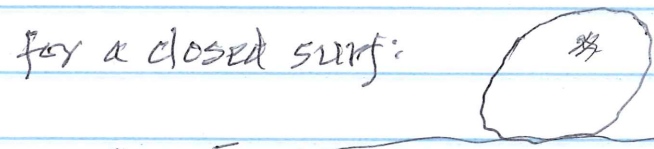 for a closed surf: